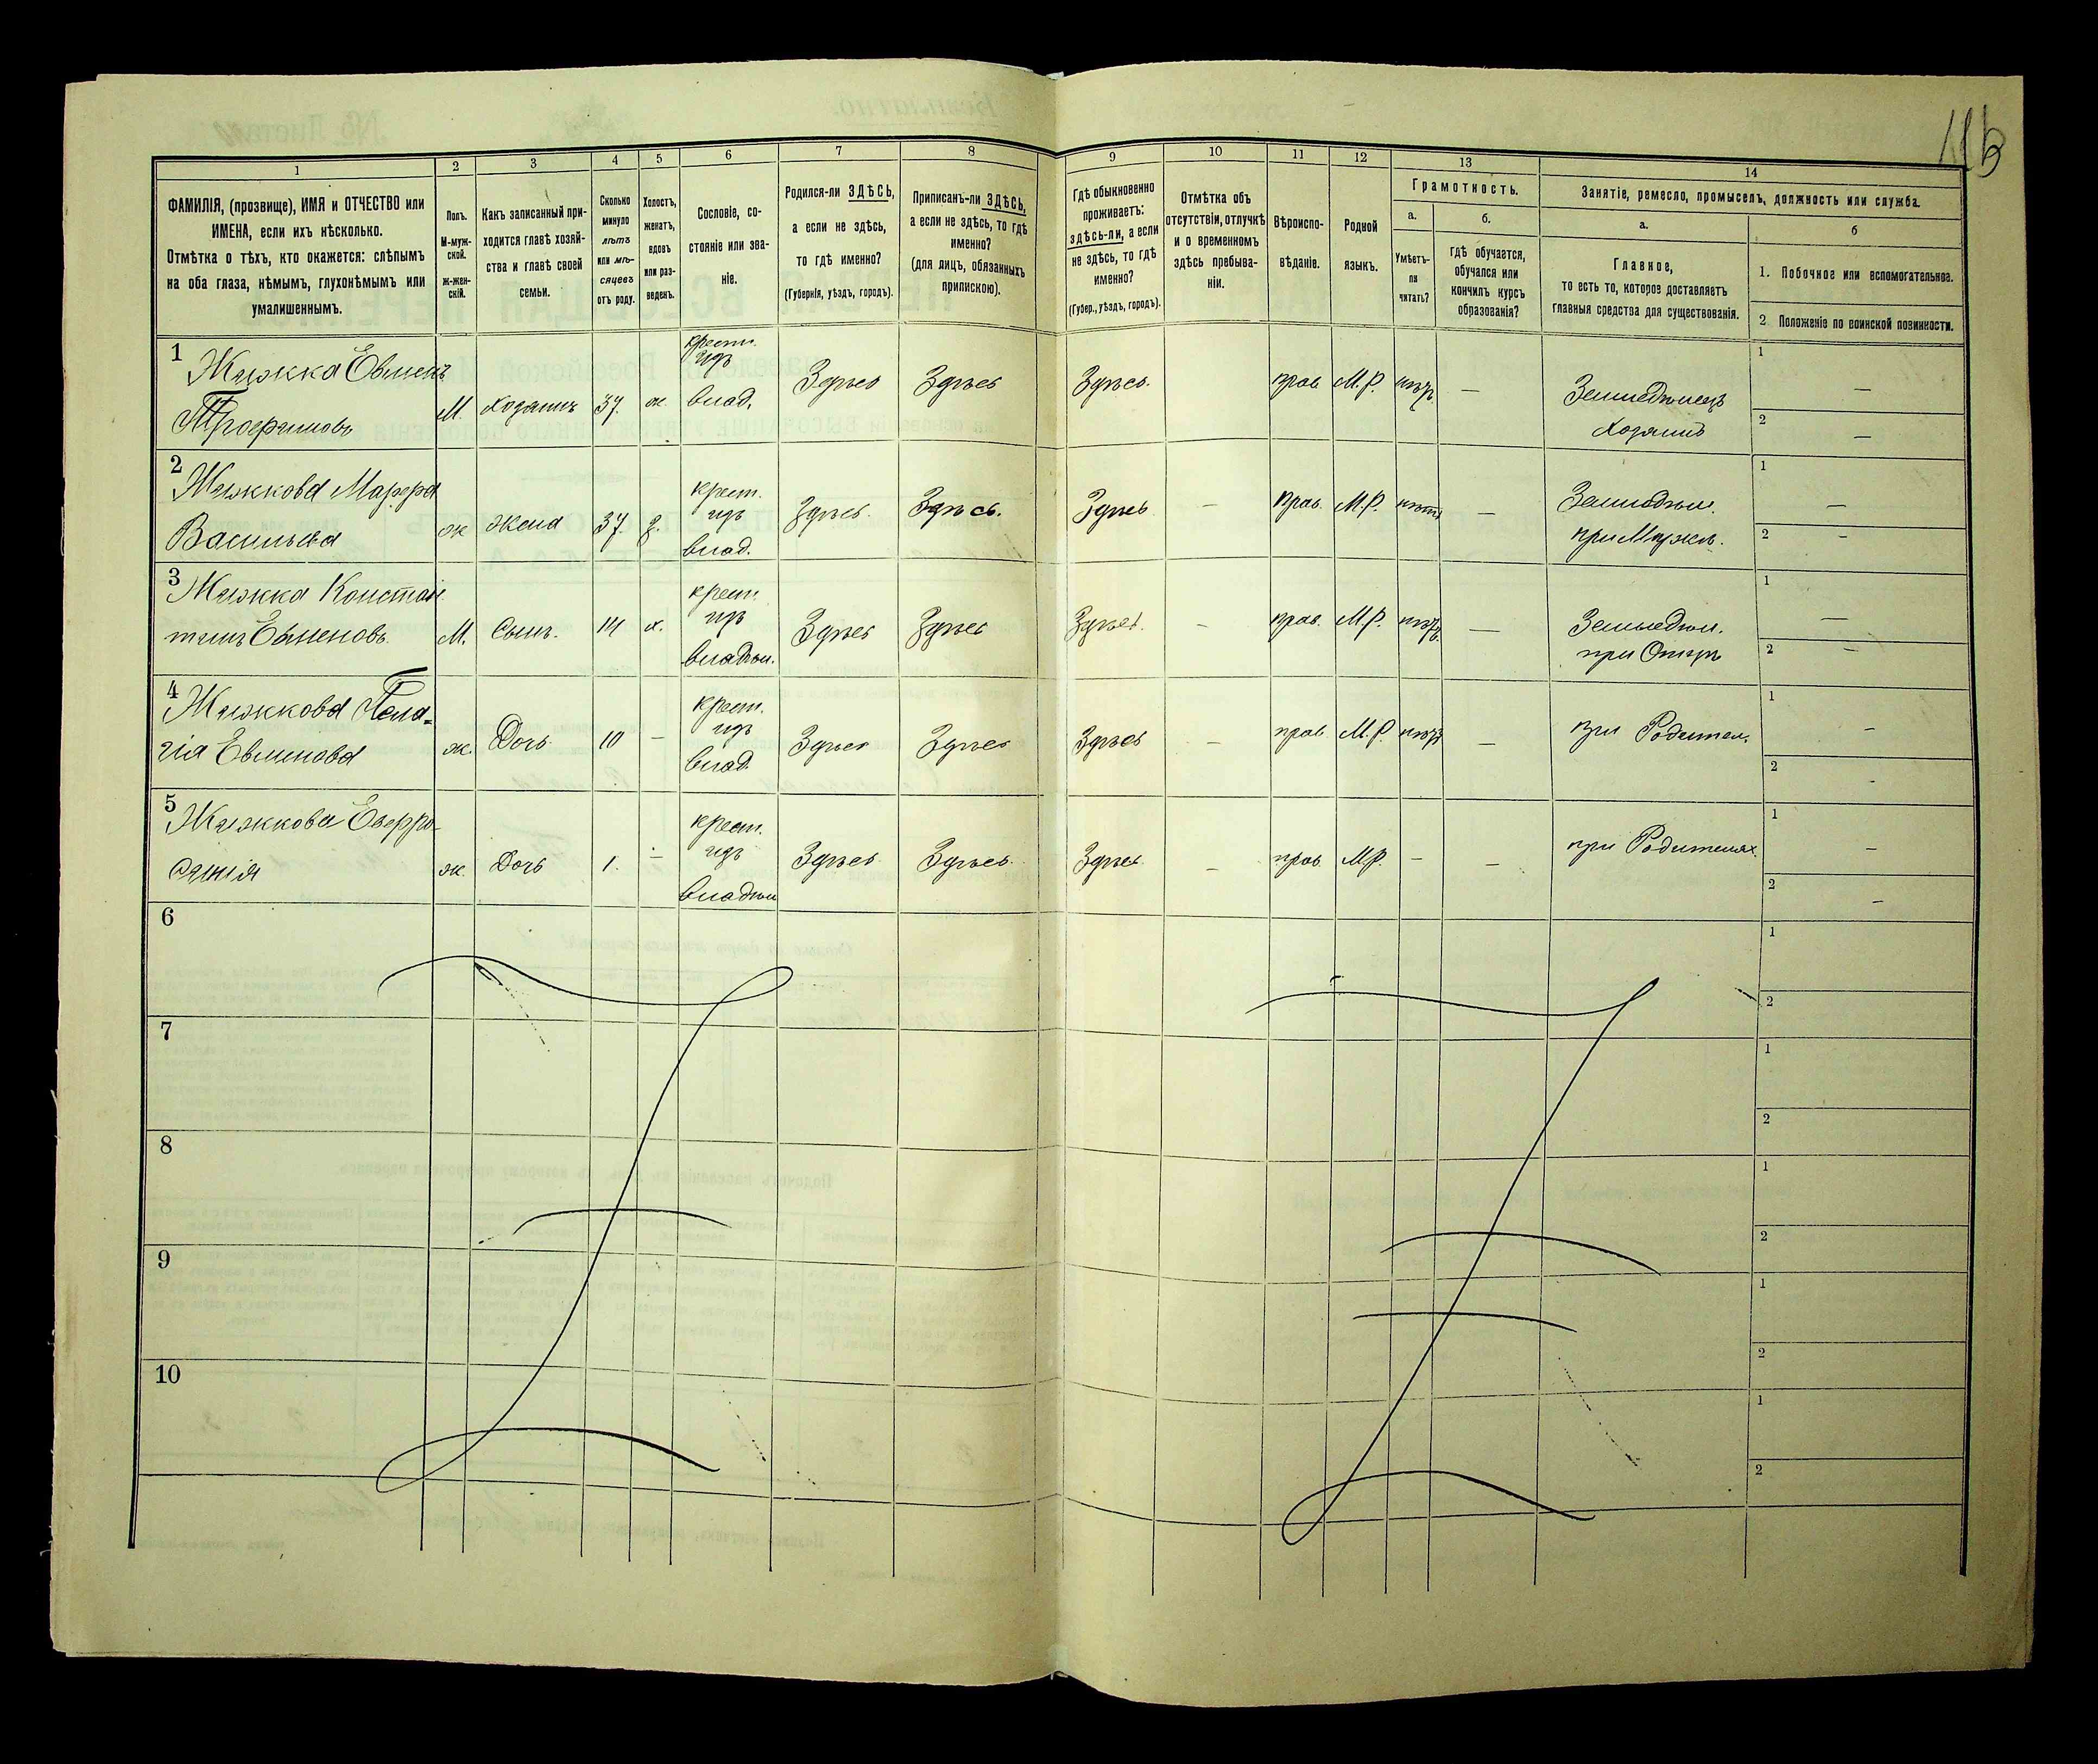 116
1 2 3 4 5 6 7 8 9 10 11 12 13 14
ФАМИЛІЯ, (прозвище), ИМЯ и ОТЧЕСТВО или
ИМЕНА, если ихъ нѣсколько.
Отмѣтка о тѣхъ, кто окажется: слѣпымъ
на оба глаза, нѣмымъ, глухонѣмымъ или
умалишеннымъ.
Полъ.
М-муж-
ской.
Ж-жен-
скій.
Какъ записанный при-
ходится главѣ хозяй-
ства и главѣ своей
семьи.
Сколько
минуло
лѣтъ
или мѣ-
сяцевъ
отъ роду.
Холостъ,
женатъ,
вдовъ
или раз-
веденъ.
Сословіе, со-
стояніе или зва-
ніе.
Родился-ли ЗДѢСЬ,
а если не здѣсь,
то гдѣ именно?
(Губернія, уѣздъ, городъ).
Приписанъ-ли ЗДѢСЬ,
а если не здѣсь, то гдѣ
именно?
(для лицъ, обязанныхъ
припискою).
Гдѣ обыкновенно
проживаетъ:
здѣсь-ли, а если
не здѣсь, то гдѣ
именно?
(Губер., уѣздъ, городъ).
Отмѣтка объ
отсутствіи, отлучкѣ
и о временномъ
здѣсь пребыва-
ніи.
Вѣроиспо-
вѣданіе.
Родной
языкъ.
Грамотность.
а.
Умѣетъ-
ли
читать?
б.
Гдѣ обучается,
обучался или
кончилъ курсъ
образованія?
Занятіе, ремесло, промыселъ, должность или служба.
а.
Главное,
то есть то, которое доставляетъ
главныя средства для существованія.
б
1. Побочное или вспомогательное.
2 Положеніе по воинской повинности.
1 Евменъ
Трофимовъ
М. Хозяинъ 37. ж.
крест.
изъ
влад.
Здѣсь Здѣсь Здѣсь. прав. М.Р. —
Земледѣлецъ
Хозяинъ
1 —
2 —
2 Марфа
Васильева
ж Жена 37. з.
крест.
изъ
влад.
Здѣсь. Здѣсь. Здѣсь — прав. М.Р. нѣтъ —
Земледѣл.
при Мужѣ.
1 —
2 -
3 Констан
тинъ Евменовъ.
М. Сынъ. 14 х.
крест.
изъ
владѣл.
Здѣсь Здѣсь Здѣсь. - прав. М.Р. —
Земледѣл.
при Отцѣ
1 —
2 —
4 Пела-
гія Евменова
ж. Дочь. 10 —
крест.
изъ
влад.
Здѣсь Здѣсь Здѣсь — прав М.Р. —
при Родител.
1 -
2 -
5 Евфро-
синія
ж. Дочь 1. —
крест.
изъ
владѣл
Здѣсь Здѣсь. Здѣсь - прав М.Р. - -
при Родителях.
1 —
2 —
6 1
2
7 1
2
8 1
2
9 1
2
10 1
2